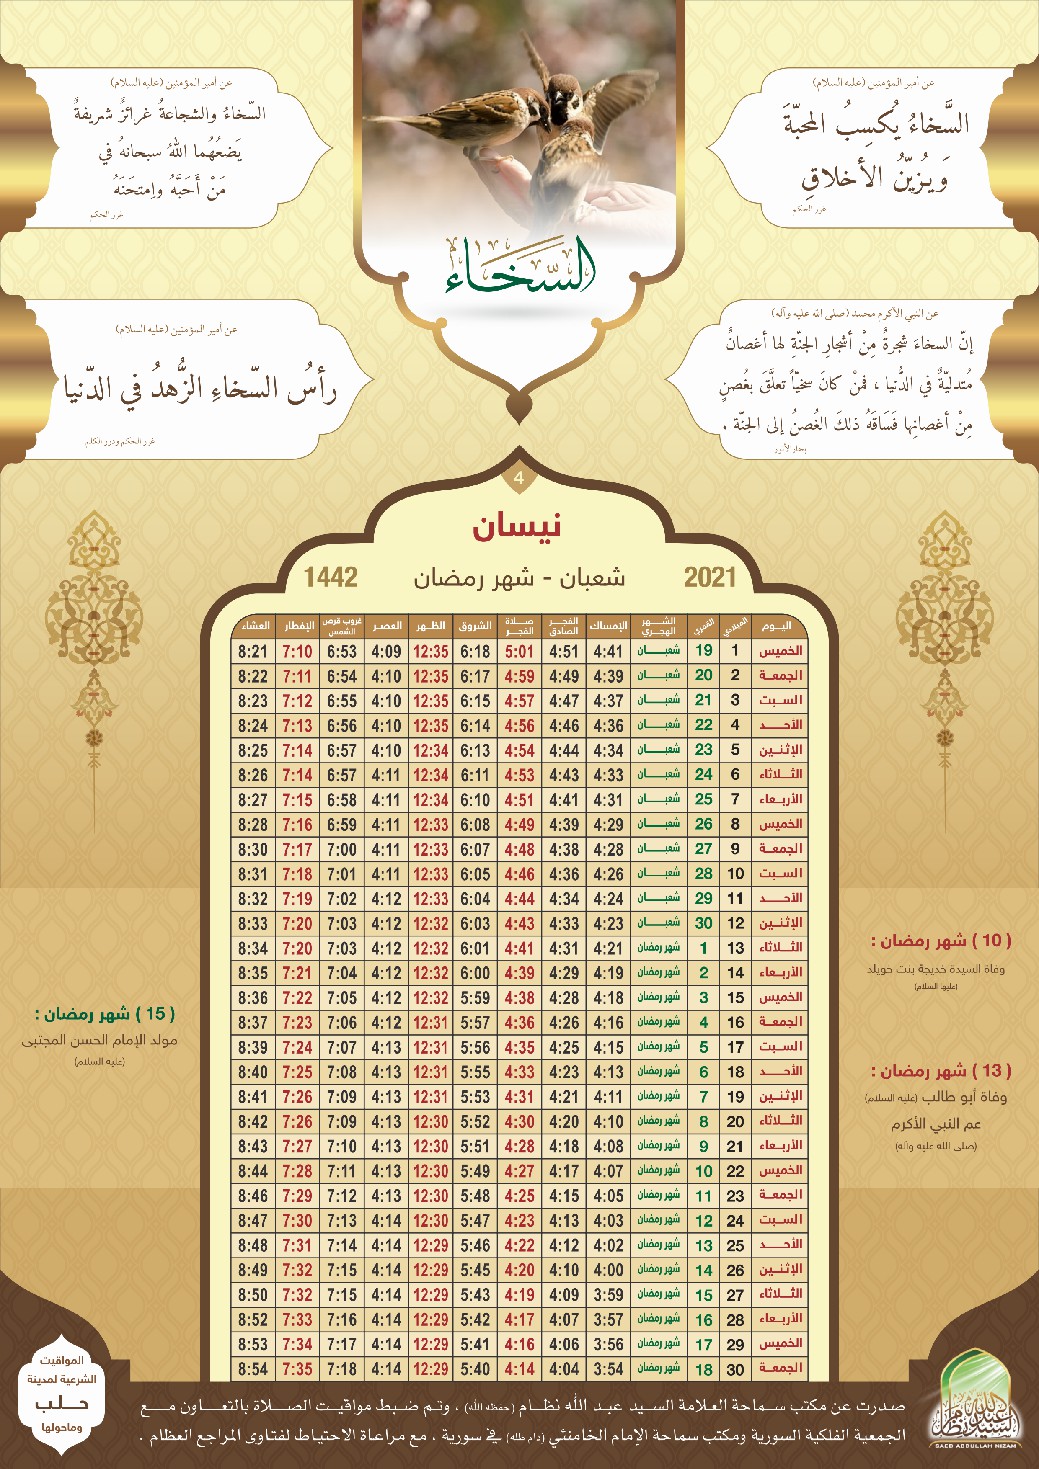 عن أمير المؤمنين (عليه السلام)
السَّخاءُ يُكسِبُ المحبّةَ
وَيُزيّنُ الأخلاقِ
غرر الحكم
عن أمير المؤمنين (عليه السلام)
السّخاءُ والشجاعةُ غرائزُ شريفةٌ
يَضعُهُما اللهُ سبحانهُ في
مَنْ أَحَبَّهُ وامتحَنَهُ
غرر الحكم
السَّخَاءُ
عن النبي الأكرم محمد (صلى الله عليه وآله)
إنّ السخاءَ شجرةٌ مِنْ أشجارِ الجنّةِ لها أغصانٌ
مُتدليّةٌ في الدُّنيا ، فمنْ كانَ سخيّاً تعلَّقَ بغُصنٍ
مِنْ أغصانِها فَسَاقَهُ ذلكَ الغُصنُ إلى الجنّة .
بحار الأنوار
عن أمير المؤمنين (عليه السلام)
رأسُ السّخاءِ الزُّهدُ في الدّنيا
غرر الحكم ودرر الكلم
4
نيسان
2021 شعبان - شهر رمضان 1442
اليـوم الميلادي القمري الشـهر الهجري الإمساك الفجـر الصادق صـلاة الفجـر الشروق الظـهر العصـر غروب قرص الشمس الإفطار العشاء
الخميس 1 19 شعبـــان 4:41 4:51 5:01 6:18 12:35 4:09 6:53 7:10 8:21
الجمعـة 2 20 شعبـــان 4:39 4:49 4:59 6:17 12:35 4:10 6:54 7:11 8:22
السـبت 3 21 شعبـــان 4:37 4:47 4:57 6:15 12:35 4:10 6:55 7:12 8:23
الأحـــد 4 22 شعبـــان 4:36 4:46 4:56 6:14 12:35 4:10 6:56 7:13 8:24
الإثنـين 5 23 شعبـــان 4:34 4:44 4:54 6:13 12:34 4:10 6:57 7:14 8:25
الثـلاثاء 6 24 شعبـــان 4:33 4:43 4:53 6:11 12:34 4:11 6:57 7:14 8:26
الأربعـاء 7 25 شعبـــان 4:31 4:41 4:51 6:10 12:34 4:11 6:58 7:15 8:27
الخميس 8 26 شعبـــان 4:29 4:39 4:49 6:08 12:33 4:11 6:59 7:16 8:28
الجمعـة 9 27 شعبـــان 4:28 4:38 4:48 6:07 12:33 4:11 7:00 7:17 8:30
السـبت 10 28 شعبـــان 4:26 4:36 4:46 6:05 12:33 4:11 7:01 7:18 8:31
الأحـــد 11 29 شعبـــان 4:24 4:34 4:44 6:04 12:33 4:12 7:02 7:19 8:32
الإثنـين 12 30 شعبـــان 4:23 4:33 4:43 6:03 12:32 4:12 7:03 7:20 8:33
الثـلاثاء 13 1 شهر رمضان 4:21 4:31 4:41 6:01 12:32 4:12 7:03 7:20 8:34
الأربعـاء 14 2 شهر رمضان 4:19 4:29 4:39 6:00 12:32 4:12 7:04 7:21 8:35
الخميس 15 3 شهر رمضان 4:18 4:28 4:38 5:59 12:32 4:12 7:05 7:22 8:36
الجمعـة 16 4 شهر رمضان 4:16 4:26 4:36 5:57 12:31 4:12 7:06 7:23 8:37
السـبت 17 5 شهر رمضان 4:15 4:25 4:35 5:56 12:31 4:13 7:07 7:24 8:39
الأحـــد 18 6 شهر رمضان 4:13 4:23 4:33 5:55 12:31 4:13 7:08 7:25 8:40
الإثنـين 19 7 شهر رمضان 4:11 4:21 4:31 5:53 12:31 4:13 7:09 7:26 8:41
الثـلاثاء 20 8 شهر رمضان 4:10 4:20 4:30 5:52 12:30 4:13 7:09 7:26 8:42
الأربعـاء 21 9 شهر رمضان 4:08 4:18 4:28 5:51 12:30 4:13 7:10 7:27 8:43
الخميس 22 10 شهر رمضان 4:07 4:17 4:27 5:49 12:30 4:13 7:11 7:28 8:44
الجمعـة 23 11 شهر رمضان 4:05 4:15 4:25 5:48 12:30 4:13 7:12 7:29 8:46
السـبت 24 12 شهر رمضان 4:03 4:13 4:23 5:47 12:30 4:14 7:13 7:30 8:47
الأحـــد 25 13 شهر رمضان 4:02 4:12 4:22 5:46 12:29 4:14 7:14 7:31 8:48
الإثنـين 26 14 شهر رمضان 4:00 4:10 4:20 5:45 12:29 4:14 7:15 7:32 8:49
الثـلاثاء 27 15 شهر رمضان 3:59 4:09 4:19 5:43 12:29 4:14 7:15 7:32 8:50
الأربعـاء 28 16 شهر رمضان 3:57 4:07 4:17 5:42 12:29 4:14 7:16 7:33 8:52
الخميس 29 17 شهر رمضان 3:56 4:06 4:16 5:41 12:29 4:14 7:17 7:34 8:53
الجمعـة 30 18 شهر رمضان 3:54 4:04 4:14 5:40 12:29 4:14 7:18 7:35 8:54
( 10 ) شهر رمضان :
وفاة السيدة خديجة بنت خويلد
(عليها السلام)
( 13 ) شهر رمضان :
وفاة أبو طالب (عليه السلام)
عم النبي الأكرم
(صلى الله عليه وآله)
( 15 ) شهر رمضان :
مولد الإمام الحسن المجتبى
(عليه السلام)
صدرت عن مكتب سماحة العلامة السيد عبد الله نظام (حفظه الله) ، وتم ضبط مواقيت الصلاة بالتعاون مع
الجمعية الفلكية السورية ومكتب سماحة الإمام الخامنئي (دام ظله) في سورية ، مع مراعاة الاحتياط لفتاوى المراجع العظام .
المواقيت
الشرعية لمدينة
حلب
وماحولها
SAED ABDULLAH NIZAM